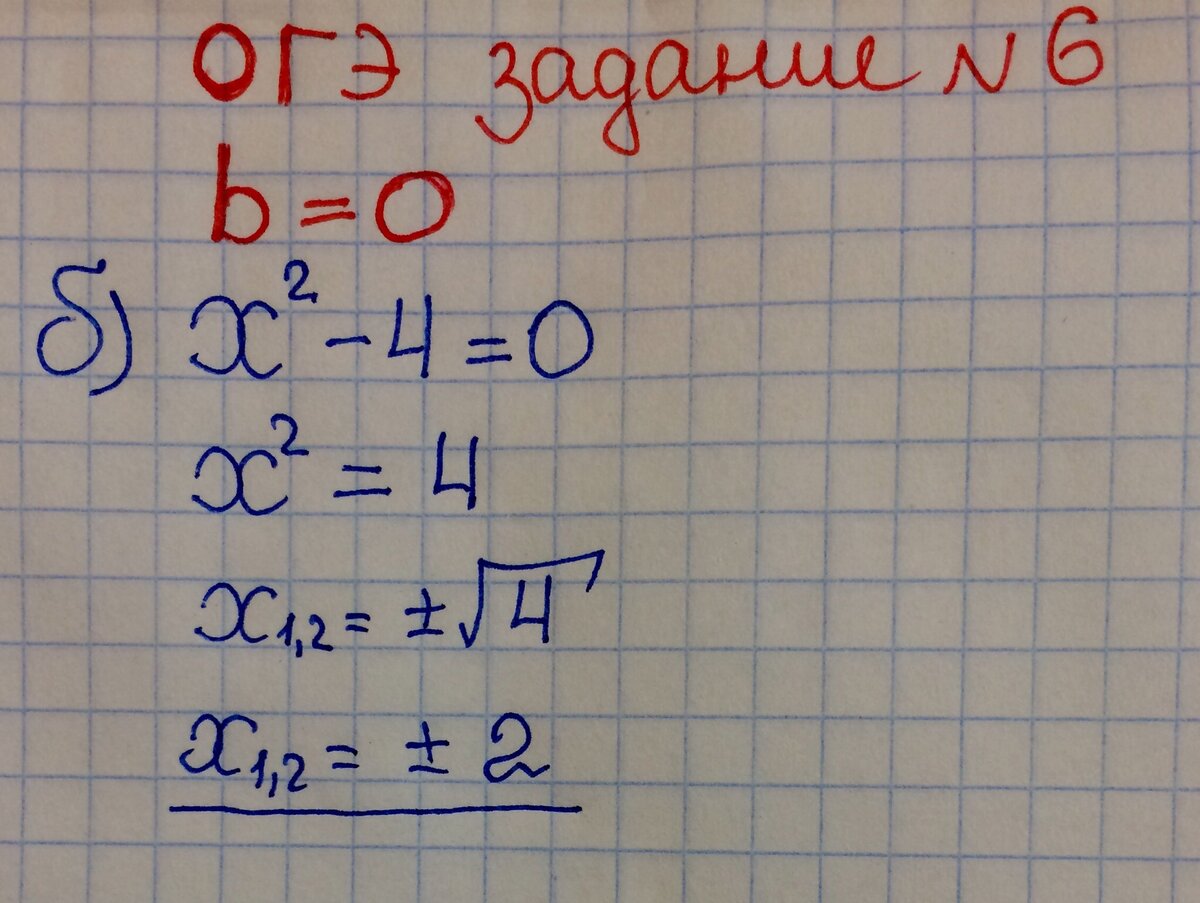 ОГЭ задание N 6
b = 0
б) x² - 4 = 0
x² = 4
x₁,₂ = ± √4
x₁,₂ = ± 2